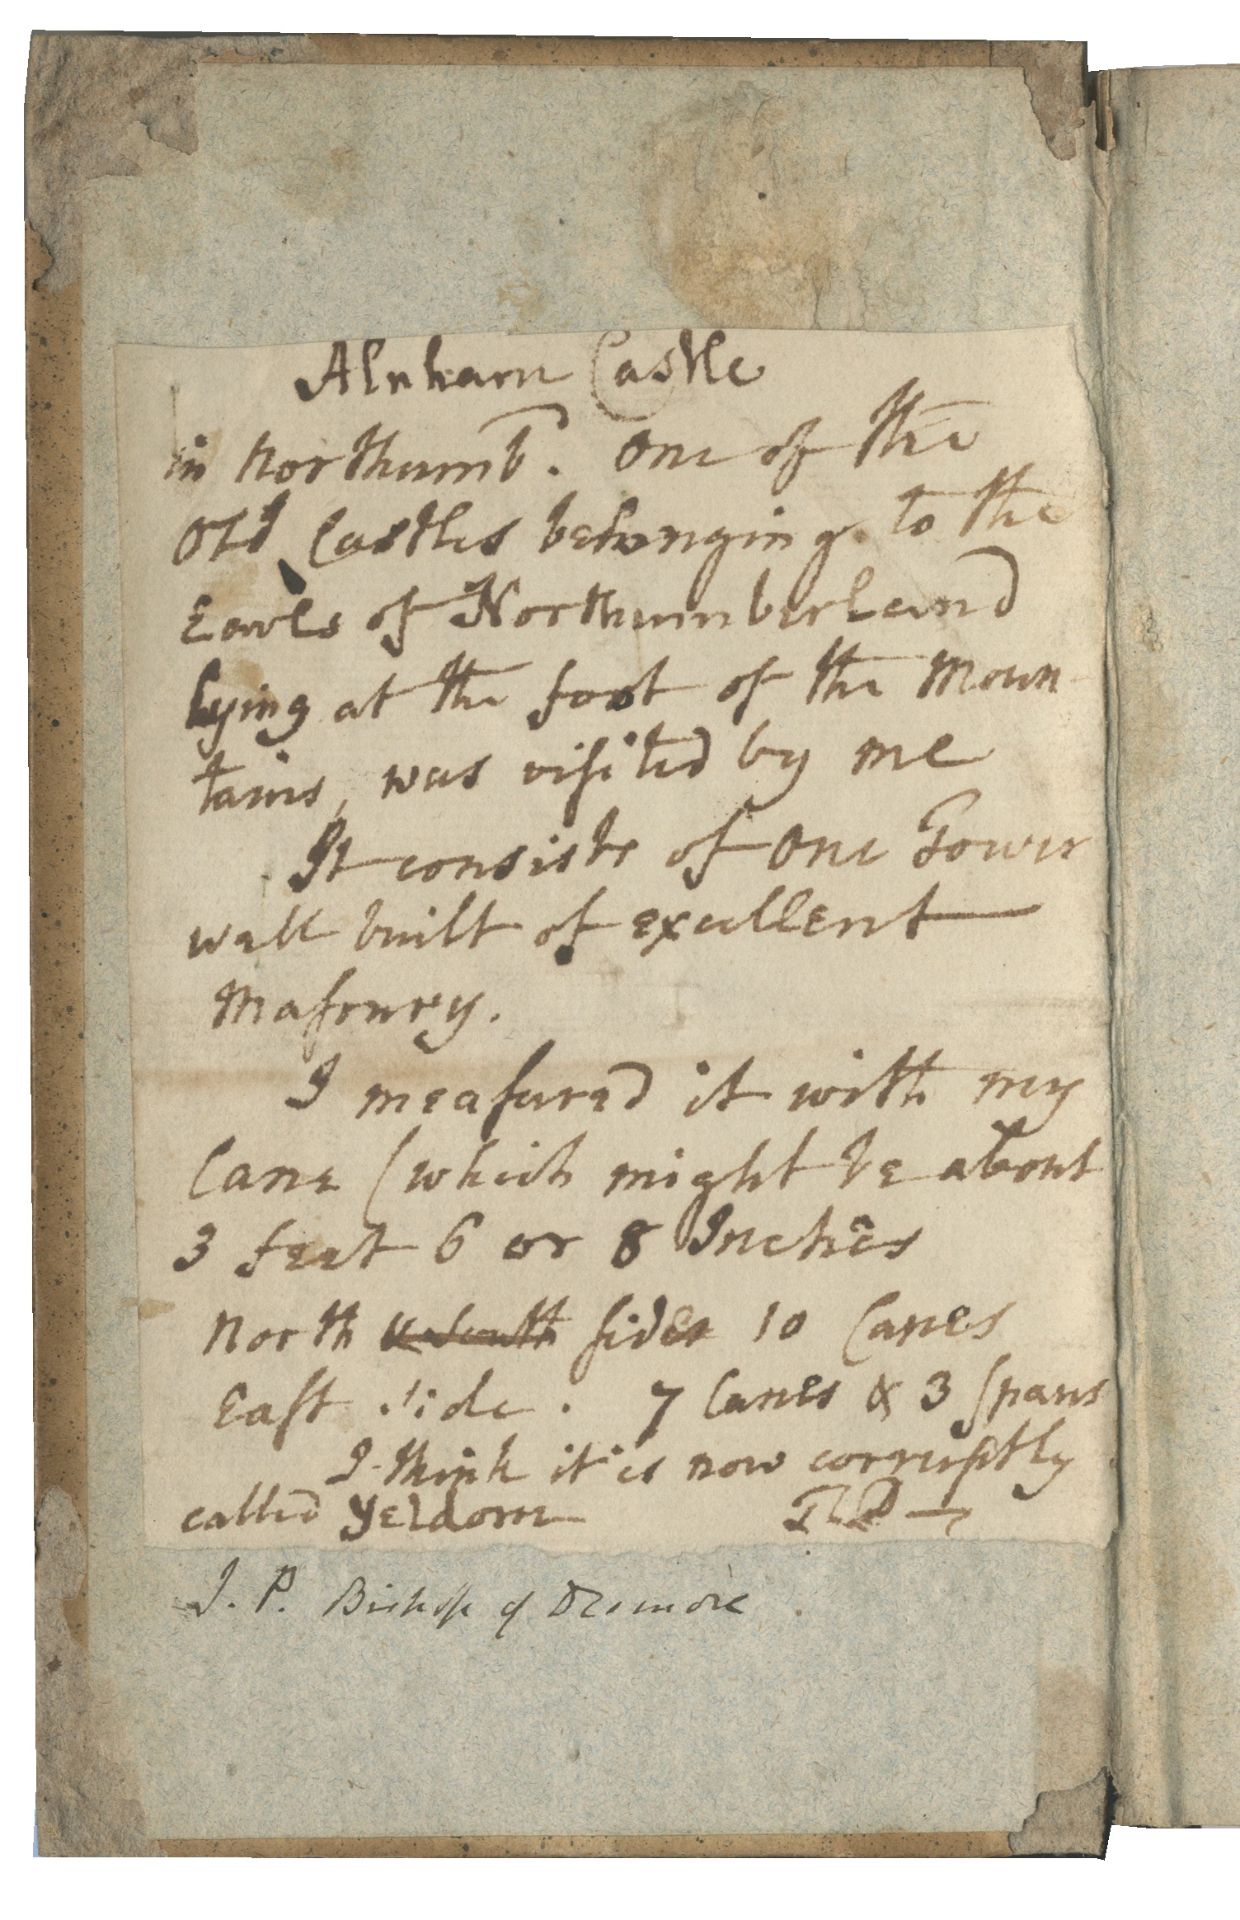 Alnham Castle
in Northumb. One of the
Old Castles belonging to the
Earls of Northumberland
lying at the foot of the Moun-
tains, was visited by me
It consists of One Tower
well built of excellent
Masonry.
I measured it with my
Cane (which might be about
3 feet 6 or 8 Inches
North & South sides 10 Canes
East side. 7 Canes & 3 Spans
I think it is now corruptly
called Yeldom
J. P. Bishop of Dromore